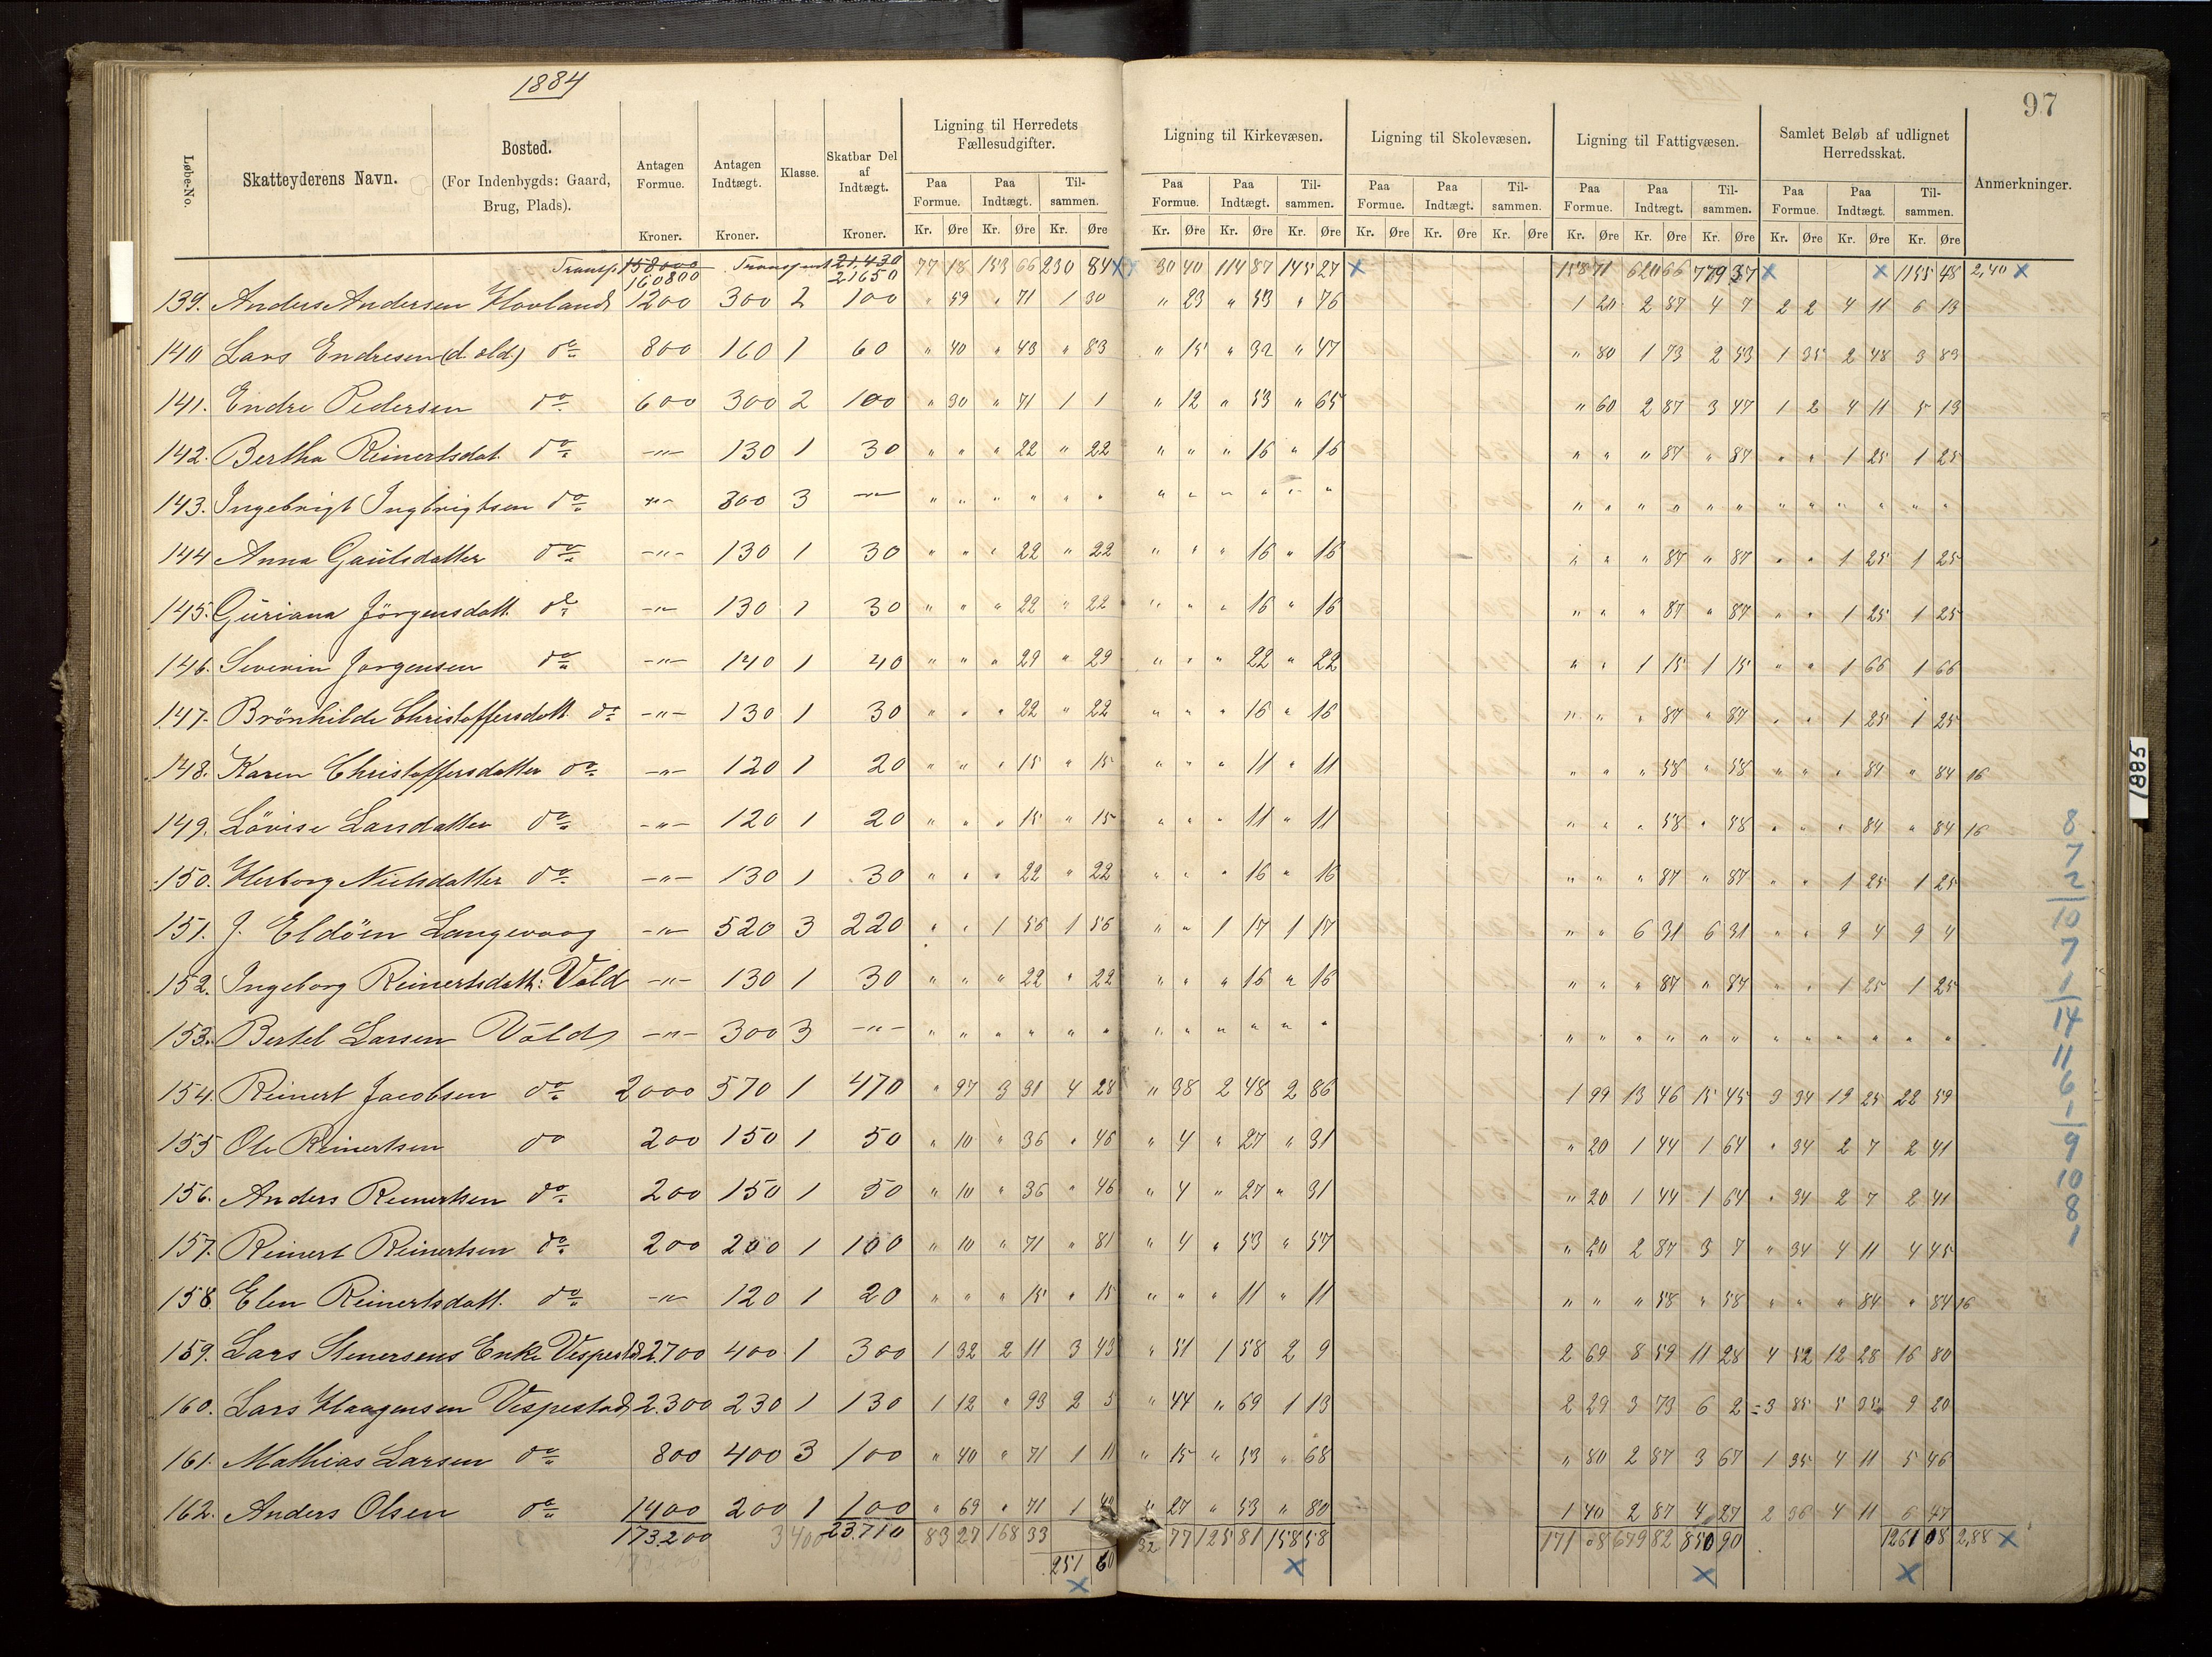 1884
97
Løbe-No.
Skatteyderens Navn.
Bosted.
(For Indenbygds: Gaard,
Brug, Plads).
Antagen Formue. Kroner.
Antagen Indtægt. Kroner.
Klasse.
Skatbar Del af Indtægt. Kroner.
Ligning til Herredets Fællesudgifter.
Ligning til Kirkevæsen.
Ligning til Skolevæsen.
Ligning til Fattigvæsen.
Samlet Beløb af udlignet Herredsskat.
Anmerkninger.
Paa Formue. Paa Indtægt. Tilsammen. Paa Formue. Paa Indtægt. Tilsammen. Paa Formue. Paa Indtægt. Tilsammen. Paa Formue. Paa Indtægt. Tilsammen. Paa Formue. Paa Indtægt. Tilsammen.
Kr. Øre Kr. Øre Kr. Øre Kr. Øre Kr. Øre Kr. Øre Kr. Øre Kr. Øre Kr. Øre Kr. Øre Kr. Øre Kr. Øre Kr. Øre Kr. Øre Kr. Øre
Transp. 158000 Transport 21430 77 18 153 66 230 84 x 30 40 114 87 145 27 x 158 71 620 66 779 37 x x 1155 48 2,40 x
160800 21650
139. Anders Andersen Hovland 1200 300 2 100 " 59 " 71 1 30 " 23 " 53 " 76 1 20 2 87 4 7 2 2 4 11 6 13
140 Lars Endresen (d. æld.) do 800 160 1 60 " 40 " 43 " 83 " 15 " 32 " 47 " 80 1 73 2 53 1 35 2 48 3 83
141. Endre Pedersen do 600 300 2 100 " 30 " 71 1 1 " 12 " 53 " 65 " 60 2 87 3 47 1 2 4 11 5 13
142. Bertha Reinertsdat. do -"- 130 1 30 " " " 22 " 22 " " " 16 " 16 " " " 87 " 87 " " 1 25 1 25
143. Ingebrigt Ingbrigtsen do -"- 300 3 -"- " " " " " " " " " " " " " " " " " " " " " " " "
144 Anna Gautsdatter do -"- 130 1 30 " " " 22 " 22 " " " 16 " 16 " " " 87 " 87 " " 1 25 1 25
145. Guriana Jörgensdatt. do -"- 130 1 30 " " " 22 " 22 " " " 16 " 16 " " " 87 " 87 " " 1 25 1 25
146. Severin Jorgensen do -"- 140 1 40 " " " 29 " 29 " " " 22 " 22 " " 1 15 1 15 " " 1 66 1 66
147. Brönhilde Christoffersdatt. do -"- 130 1 30 " " " 22 " 22 " " " 16 " 16 " " " 87 " 87 " " 1 25 1 25
148. Karen Christoffersdatter do -"- 120 1 20 " " " 15 " 15 " " " 11 " 11 " " " 58 " 58 " " " 84 " 84 16
149. Lövise Larsdatter do -"- 120 1 20 " " " 15 " 15 " " " 11 " 11 " " " 58 " 58 " " " 84 " 84 16
150. Herborg Nielsdatter do -"- 130 1 30 " " " 22 " 22 " " " 16 " 16 " " " 87 " 87 " " 1 25 1 25
151. J. Eldöen Langevaag -"- 520 3 220 " " 1 56 1 56 " " 1 17 1 17 " " 6 31 6 31 " " 9 4 9 4
152. Ingeborg Reinertsdatt: Vold -"- 130 1 30 " " " 22 " 22 " " " 16 " 16 " " " 87 " 87 " " 1 25 1 25
153. Bertel Larsen Vold -"- 300 3 -"- " " " " " " " " " " " " " " " " " " " " " " " "
154. Reinert Jacobsen do 2000 570 1 470 " 97 3 31 4 28 " 38 2 48 2 86 1 99 13 46 15 45 3 34 19 25 22 59
155 Ole Reinertsen do 200 150 1 50 " 10 " 36 " 46 " 4 " 27 " 31 " 20 1 44 1 64 " 34 2 7 2 41
156. Anders Reinertsen do 200 150 1 50 " 10 " 36 " 46 " 4 " 27 " 31 " 20 1 44 1 64 " 34 2 7 2 41
157. Reinert Reinertsen do 200 200 1 100 " 10 " 71 " 81 " 4 " 53 " 57 " 20 2 87 3 7 " 34 4 11 4 45
158 Elen Reinertsdatt. do -"- 120 1 20 " " " 15 " 15 " " " 11 " 11 " " " 58 " 58 " " " 84 " 84 16
159. Lars Stenersens Enke Vespestd 2700 400 1 300 1 32 2 11 3 43 " 51 1 58 2 9 2 69 8 59 11 28 4 52 12 28 16 80
160. Lars Haagensen Vespestad 2.300 230 1 130 1 12 " 93 2 5 " 44 " 69 1 13 2 29 3 73 6 2 = 3 85 5 35 9 20
161. Mathias Larsen do 800 400 3 100 " 40 " 71 1 11 " 15 " 53 " 68 " 80 2 87 3 67 1 35 4 11 5 46
162. Anders Olsen do 1400 200 1 100 " 69 " 71 1 40 " 27 " 53 " 80 1 40 2 87 4 27 2 36 4 11 6 47
173.200 3400 23.710 83 27 168 33 32 77 125 81 158 58 171 08 679 82 850 90 1261 08 2,88 x
251 60
x x x x
1885
8
7
2
10
7
1
14
11
6
1
9
10
8
1